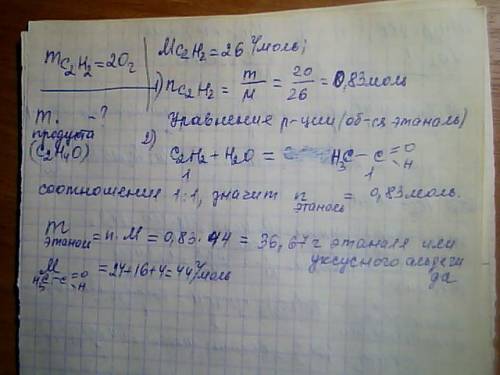 m C₂H₂ = 20г
M C₂H₂ = 26 г/моль;
1) n C₂H₂ = m/M = 20/26 = 0,83моль
m продукта - ?
(C₂H₄O)
Уравнение р-ции (об-ся этаналь)
2) C₂H₂ + H₂O = H₃C - C =O H
1 1
соотношения 1:1, значит n этаналь = 0,83 моль.
m этаналь = n · M = 0,83 · 44 = 36,67 г этаналя или
уксусного альдеги
да
M H₃C - C =O H = 24+16+4 = 44 г/моль